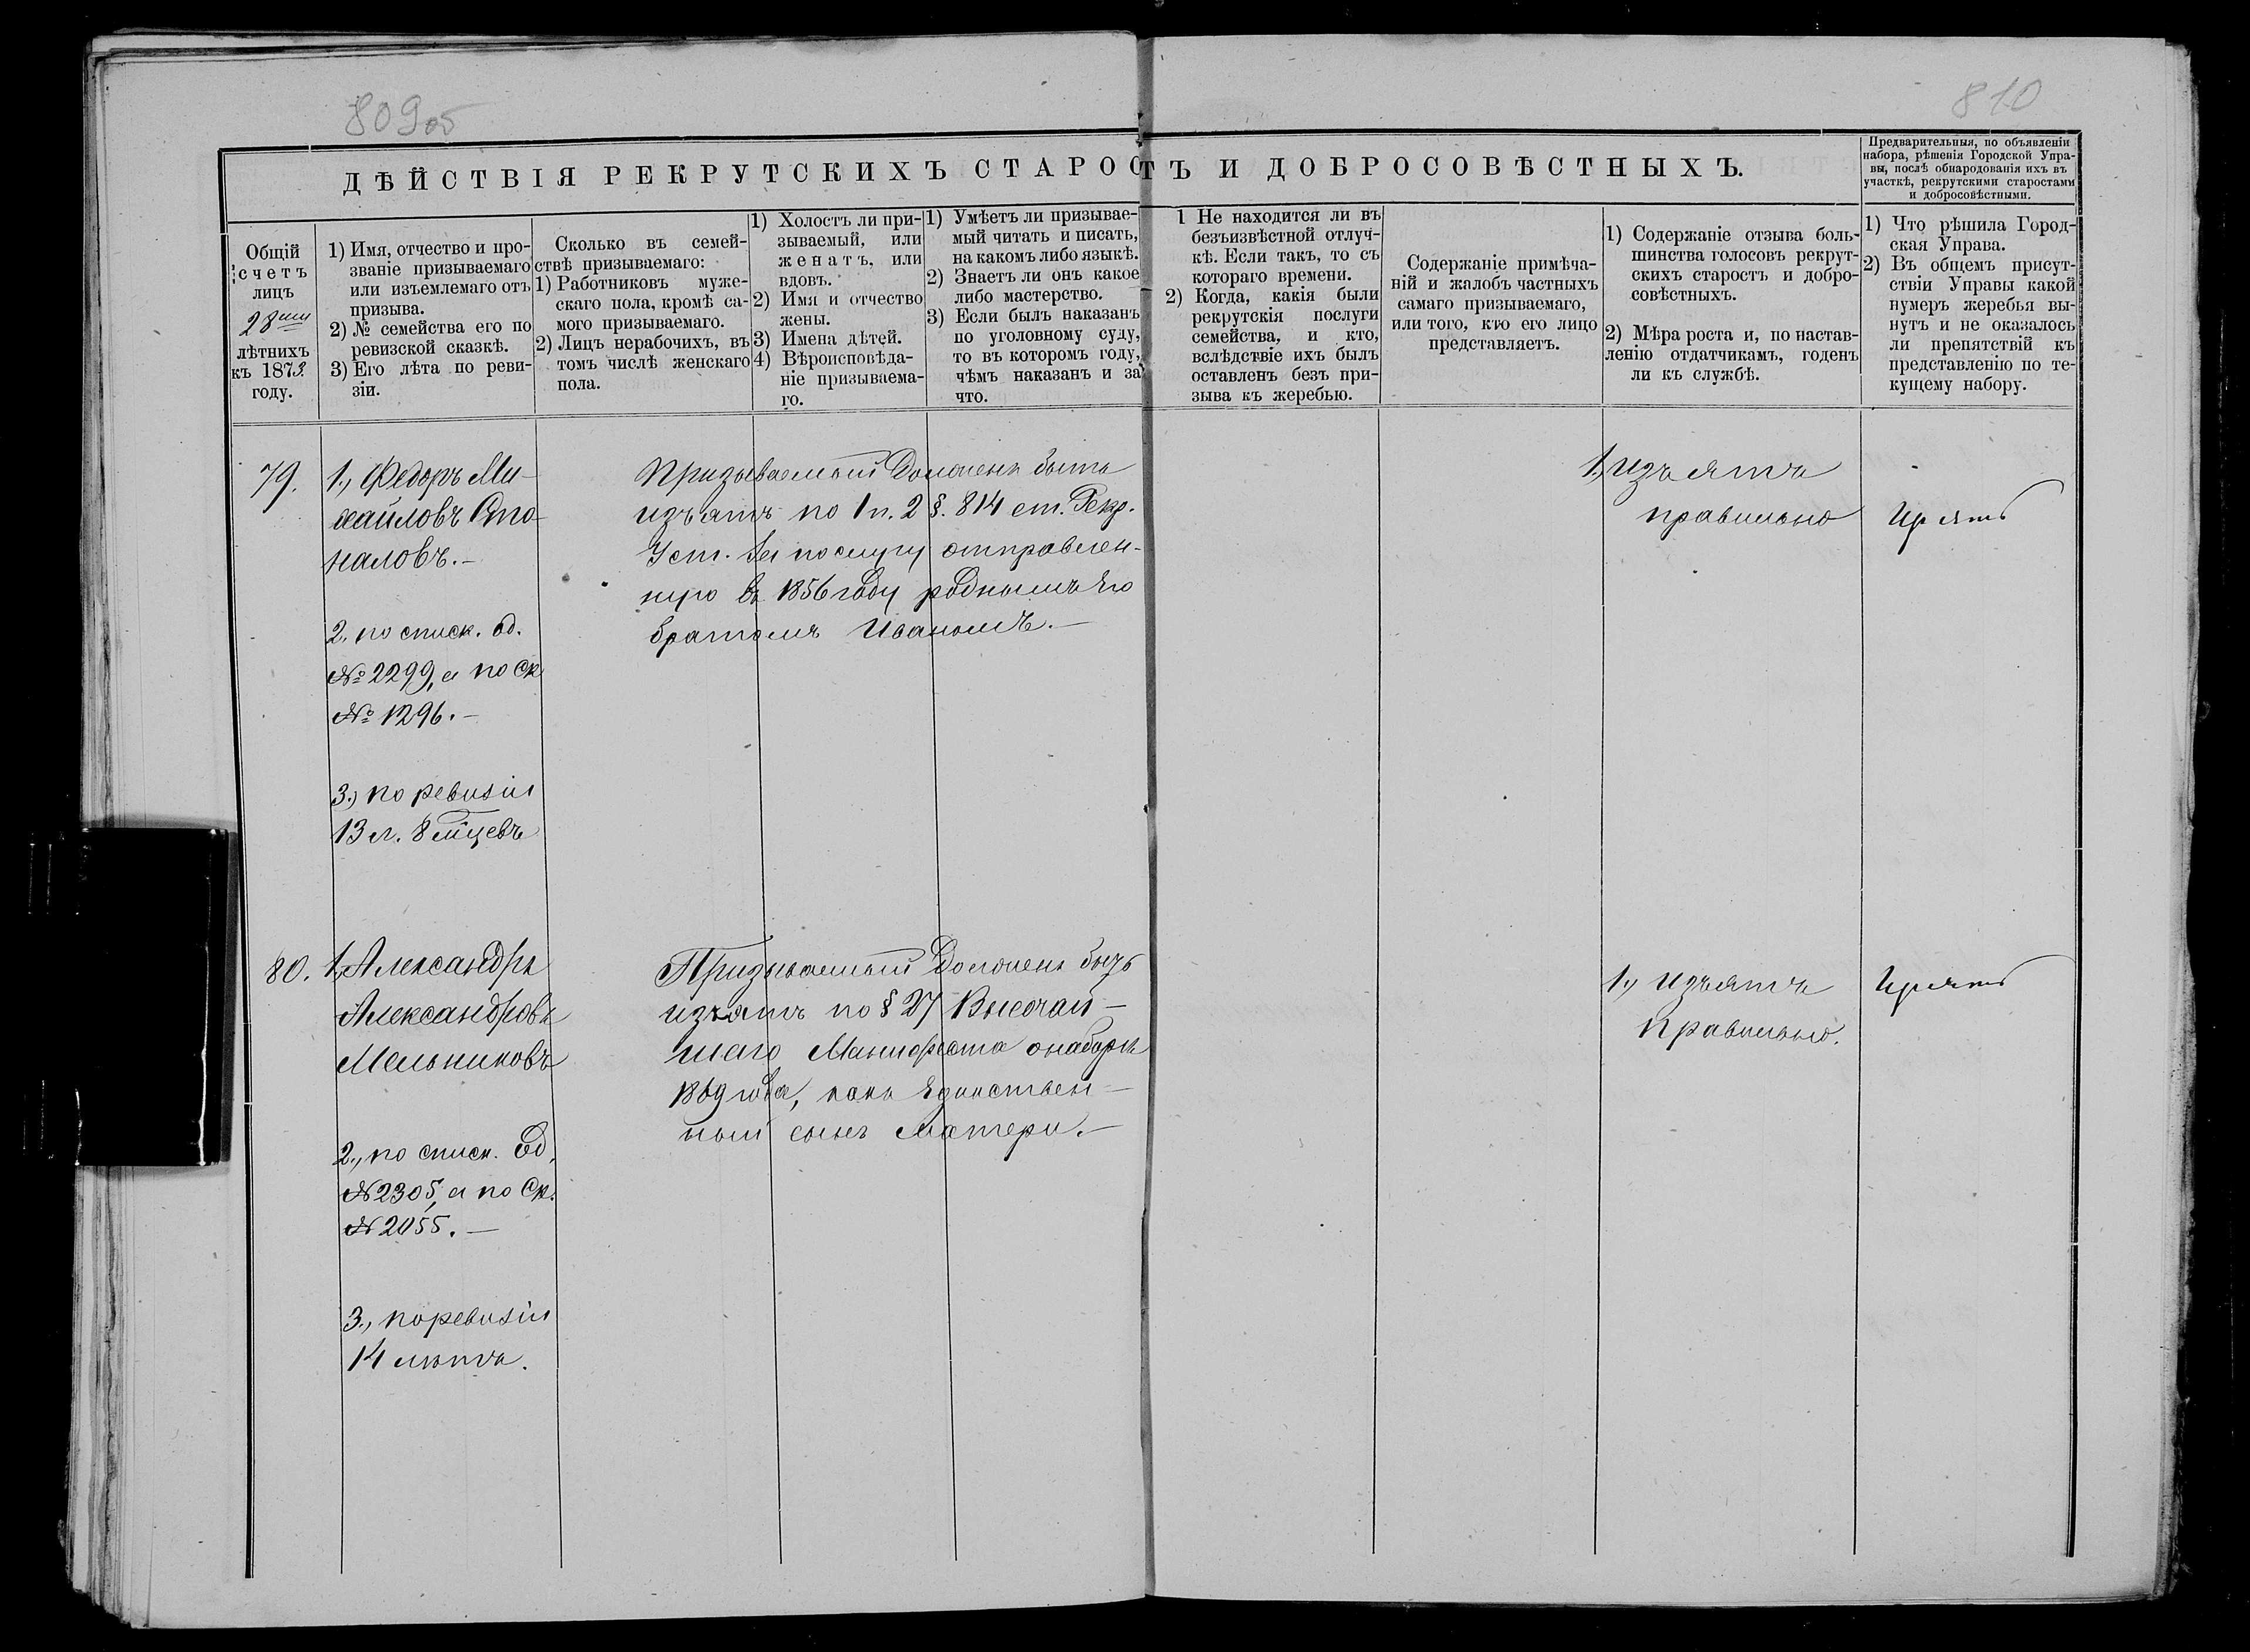 809об
810
ДѢЙСТВІЯ РЕКРУТСКИХЪ СТАРОСТЪ И ДОБРОСОВѢСТНЫХЪ.
Предварительныя, по объявленіи
набора, рѣшенія Городской Упра-
вы, послѣ обнародованія ихъ въ
участкѣ, рекрутскими старостами
и добросовѣстными.
Общій
счетъ
лицъ
28ми
лѣтнихъ
къ 1873
году.
1) Имя, отчество и про-
званіе призываемаго
или изъемлемаго отъ
призыва.
2) № семейства его по
ревизской сказкѣ.
3) Его лѣта по реви-
зіи.
Сколько въ семей-
ствѣ призываемаго:
1) Работниковъ муже-
скаго пола, кромѣ са-
мого призываемаго.
2) Лицъ нерабочихъ, въ
томъ числѣ женскаго
пола.
1) Холостъ ли при-
зываемый, или
женатъ, или
вдовъ.
2) Имя и отчество
жены.
3) Имена дѣтей.
4) Вѣроисповѣда-
ніе призываема-
го.
1) Умѣетъ ли призывае-
мый читать и писать,
на какомъ либо языкѣ.
2) Знаетъ ли онъ какое
либо мастерство.
3) Если былъ наказанъ
по уголовному суду,
то въ которомъ году,
чѣмъ наказанъ и за
что.
1 Не находится ли въ
безъизвѣстной отлуч-
кѣ. Если такъ, то съ
котораго времени.
2) Когда, какія были
рекрутскія послуги
семейства, и кто,
вслѣдствіе ихъ былъ
оставленъ безъ при-
зыва къ жеребью.
Содержаніе примѣча-
ній и жалобъ частныхъ
самаго призываемаго,
или того, кто его лицо
представляетъ.
1) Содержаніе отзыва боль-
шинства голосовъ рекрут-
скихъ старостъ и добро-
совѣстныхъ.
2) Мѣра роста и, по настав-
ленію отдатчикамъ, годенъ
ли къ службѣ.
1) Что рѣшила Город-
ская Управа.
2) Въ общемъ присут-
ствіи Управы какой
нумеръ жеребья вы-
нутъ и не оказалось
ли препятствій къ
представленію по те-
кущему набору.
79.
1., Федоръ Ми-
хайловъ
2. по списк. од.
№ 2299, а по Ск
№ 1296.-
3.) по ревизіи
13 л. 8 мѣцевъ
Призываемый Долженъ быть
изъятъ по 1 п. 2 §. 814 ст. Рекр.
Уст. За послугу отправлен-
ную въ 1856 году роднымъ Его
братомъ Иваномъ.-
1., Изъятъ
правильно
80.
1, Александръ
Александровъ
Мельниковъ
2., по списк. Од.
№ 2305, а по Ск.
№ 2055.-
3., по ревизіи
14 лѣтъ.
Призываемый Долженъ быть
изъятъ по § 27 Высочай-
шаго Манифеста о наборѣ
1869 года, какъ Единствен-
ный сынъ Матери.-
1., Изъятъ
правильно.